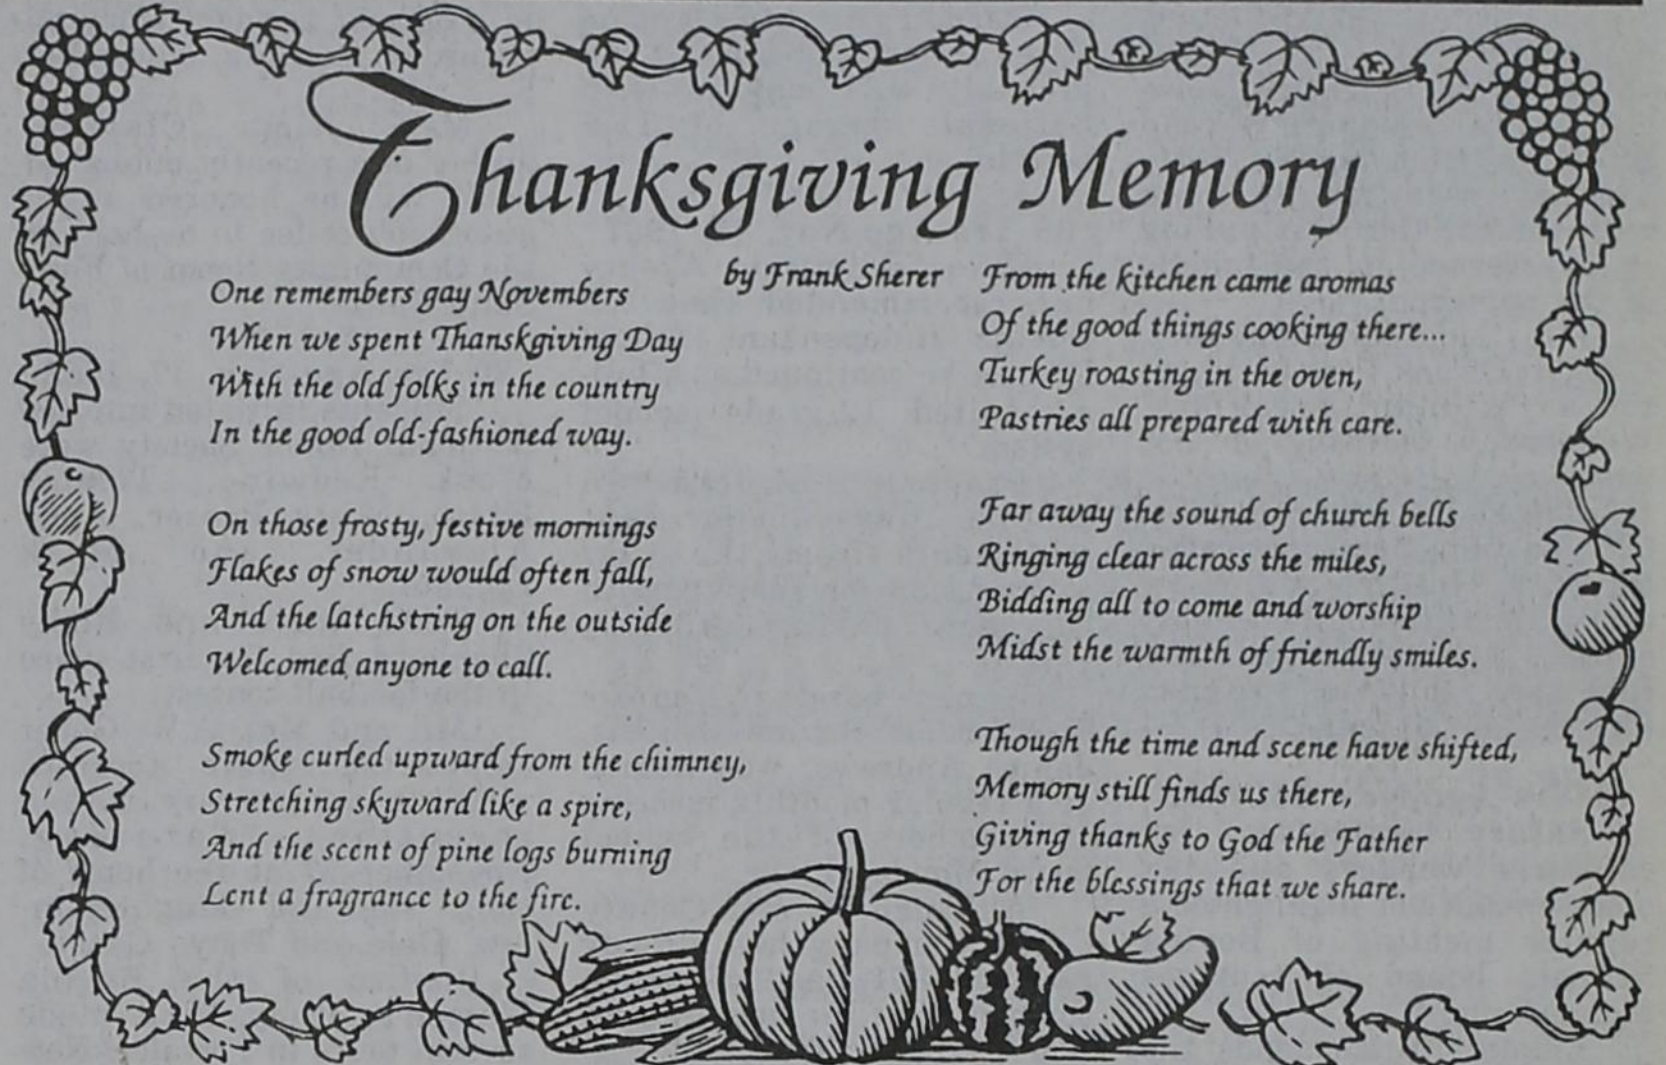 Thanksgiving Memory
by Frank Sherer
One remembers gay Novembers
When we spent Thanskgiving Day
With the old folks in the country
In the good old-fashioned way.
On those frosty, festive mornings
Flakes of snow would often fall,
And the latchstring on the outside
Welcomed anyone to call.
Smoke curled upward from the chimney,
Stretching skyward like a spire,
And the scent of pine logs burning
Lent a fragrance to the fire.
From the kitchen came aromas
Of the good things cooking there...
Turkey roasting in the oven,
Pastries all prepared with care.
Far away the sound of church bells
Ringing clear across the miles,
Bidding all to come and worship
Midst the warmth of friendly smiles.
Though the time and scene have shifted,
Memory still finds us there,
Giving thanks to God the Father
For the blessings that we share.